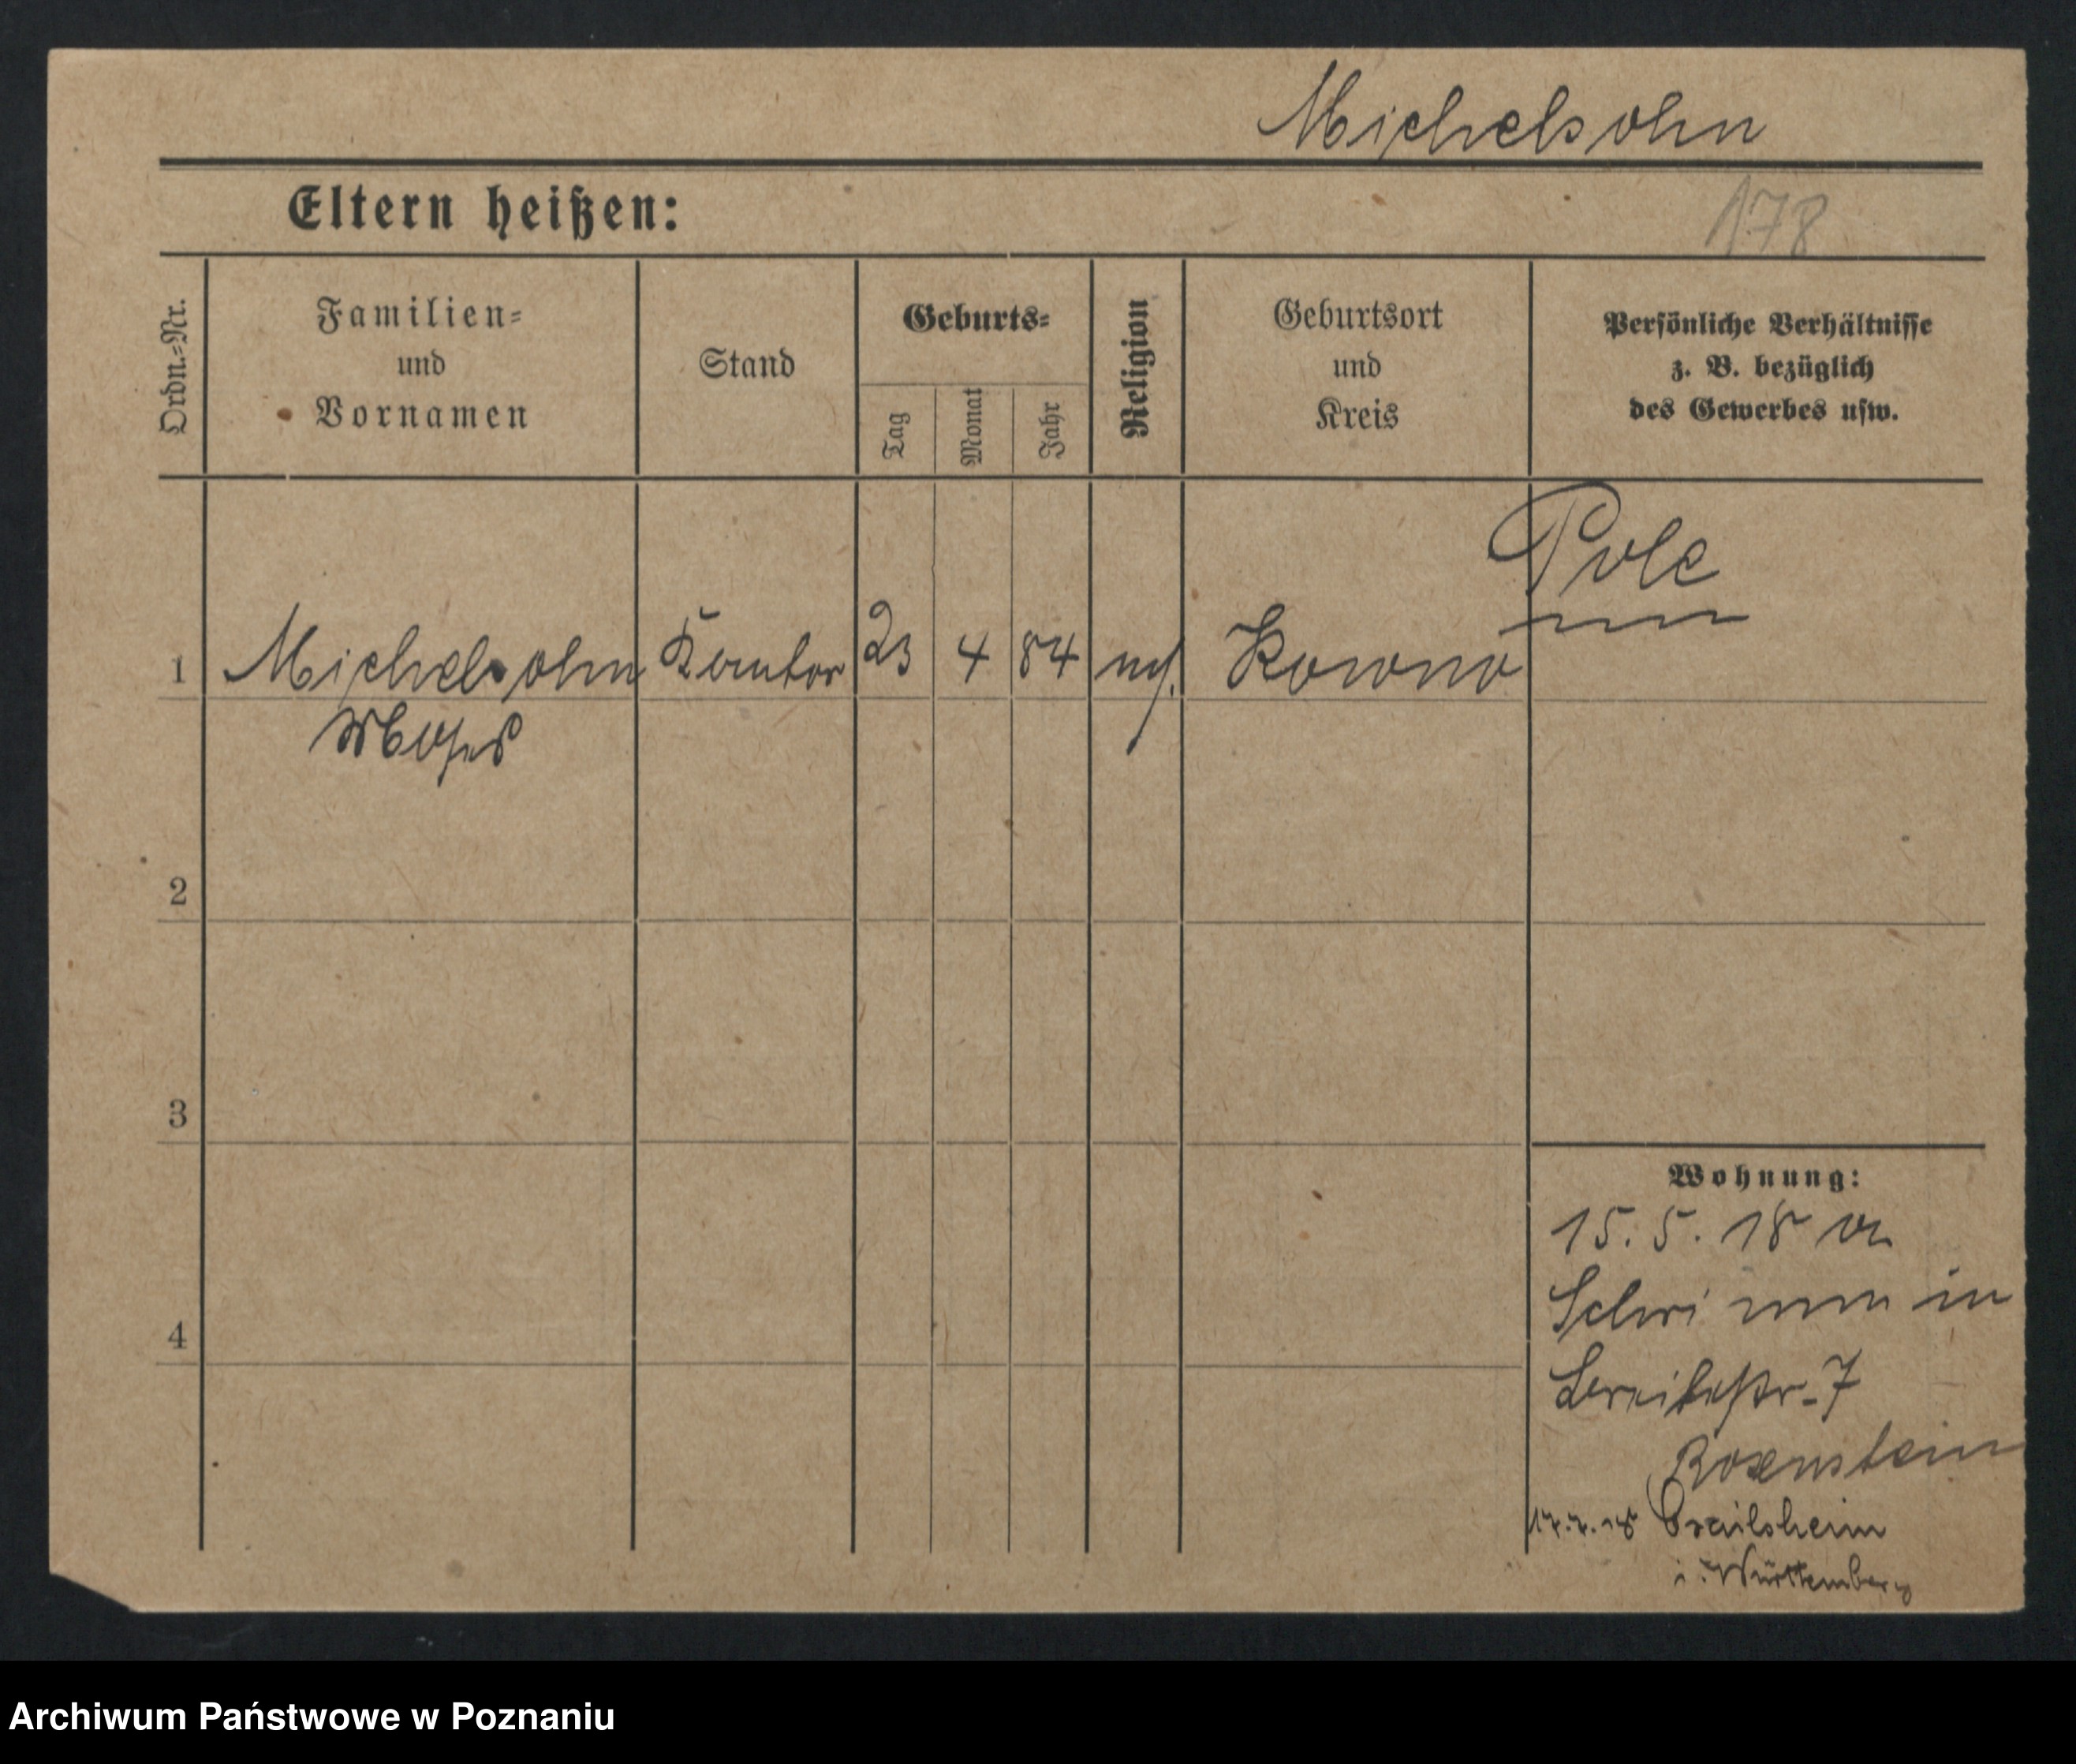 Michelsohn
Eltern heißen:
178
Ordn.=Nr.
Familien=
und
Vornamen
Stand
Geburts=
Tag
Monat
Jahr
Religion
Geburtsort
und
Kreis
Persönliche Verhältnisse
z. B. bezüglich
des Gewerbes usw.
Pole
1 Michelsohn Kantor 23 4 84 Kowno
Moses
2
3
4
Wohnung:
15. 5. 18
Schwimm in
Breitestr. 7
Rosenstein
17.7.18 Crailsheim
i. Württemberg
Archiwum Państwowe w Poznaniu